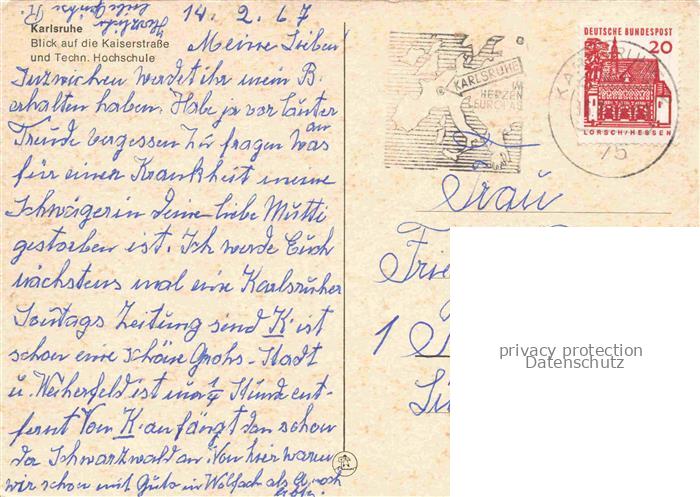 14. 2. 67
Karlsruhe
Blick auf die Kaiserstraße
und Techn. Hochschule
Meine Lieben
Inzwischen werdet ihr mein B.
erhalten haben. Habe ja vor lauter
Freude vergessen an zu fragen was
für einer Krankheit meine
Schwägerin deine liebe Mutti
gestorben ist. Ich werde Euch
nächstens mal eine Karlsruher
Sontags Zeitung send K. ist
schon eine schöne Grohs-Stadt
u. Weiherfeld ist nur 1/4 Stunde ent-
fernt Von K. an fängt dan schon
der Schwarzwald an. Von hier waren
wir schon mit Guts in Wolfach als G. noch
lebte.
DEUTSCHE BUNDESPOST
20
LORSCH/HESSEN
KARLSRUHE
IM
HERZEN
EUROPAS
KARLSRUHE
75
Frau
Frie
1
privacy protection
Datenschutz